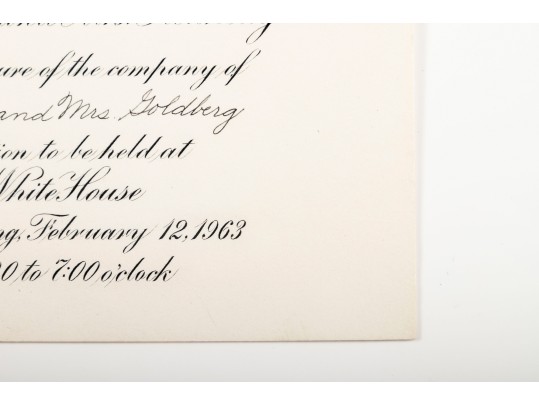 ure of the company of
and Mrs. Goldberg
ion to be held at
White House
ng, February 12, 1963
0 to 7:00 o'clock